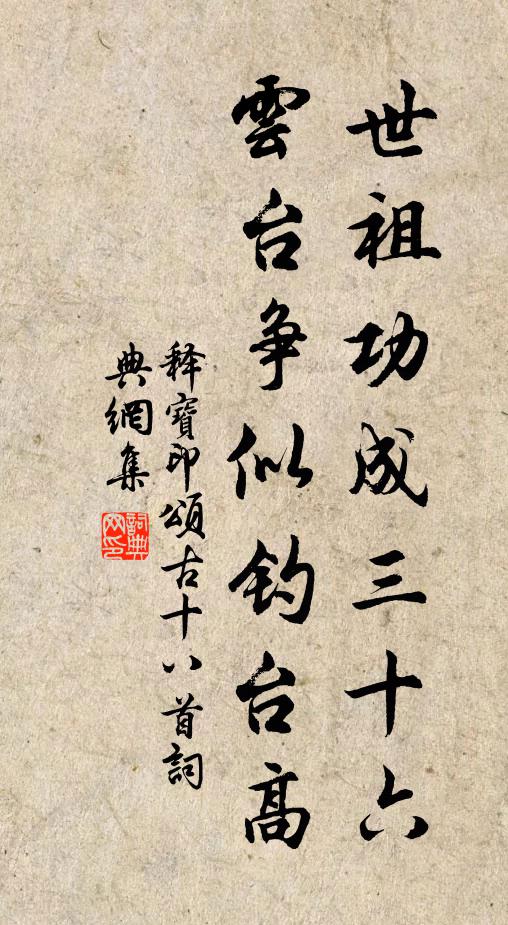 世祖功成三十六
雲台争似钓台高
释寶印頌古十八首詞
典網集
詞典
网印